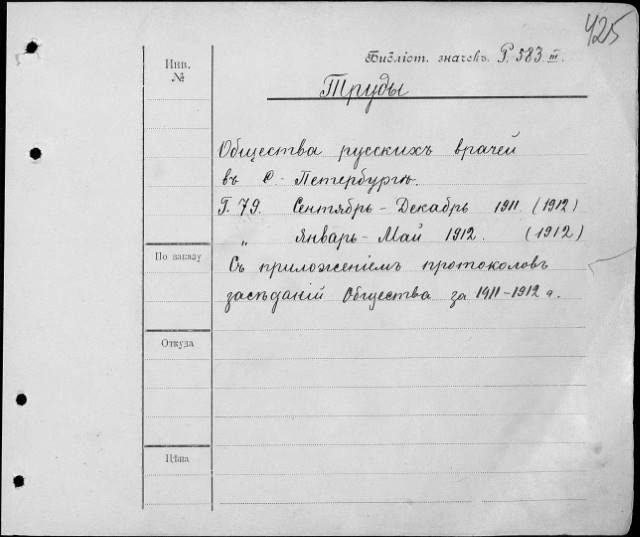 425
Библіот. значекъ P. 583 III.
Инв.
№
Труды
Общества русскихъ врачей
въ С.-Петербургѣ.
Г. 79. Сентябрь-Декабрь 1911 (1912)
„ Январь-Май 1912. (1912)
По заказу
Съ приложеніемъ протоколовъ
засѣданій Общества за 1911-1912 г.
Откуда
Цѣна